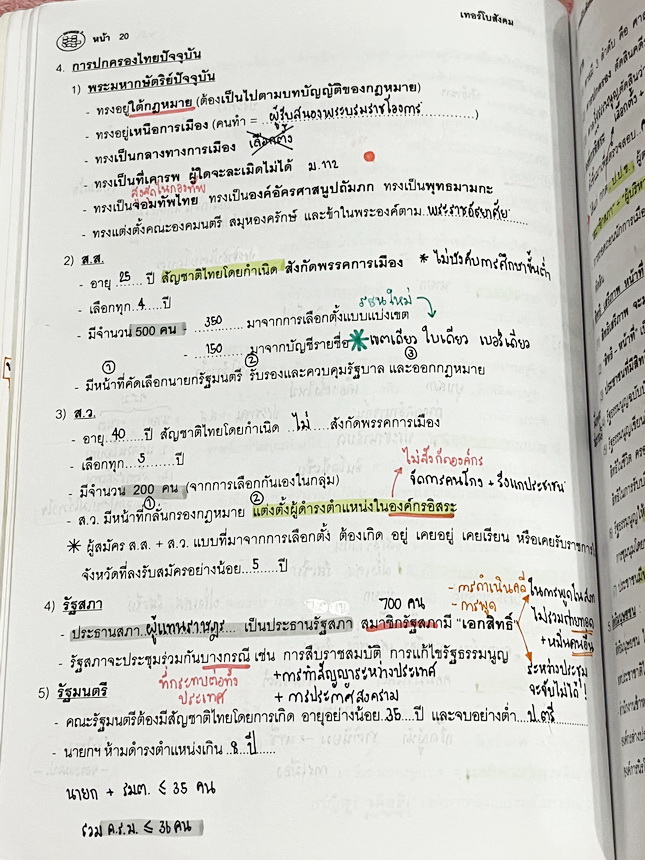 เทอร์โบสังคม
หน้า 20
4. การปกครองไทยปัจจุบัน
1) พระมหากษัตริย์ปัจจุบัน
- ทรงอยู่ใต้กฎหมาย (ต้องเป็นไปตามบทบัญญัติของกฎหมาย)
- ทรงอยู่เหนือการเมือง (คนทำ = ผู้รับสนองพระบรมราชโองการ)
- ทรงเป็นกลางทางการเมือง เลือกตั้ง
- ทรงเป็นที่เคารพ ผู้ใดจะละเมิดไม่ได้ ม.112
สูงสุดในกองทัพ
- ทรงเป็นจอมทัพไทย ทรงเป็นองค์อัครศาสนูปถัมภก ทรงเป็นพุทธมามกะ
- ทรงแต่งตั้งคณะองคมนตรี สมุหองครักษ์ และข้าในพระองค์ตาม พระราชอัธยาศัย
2) ส.ส.
- อายุ 25 ปี สัญชาติไทยโดยกำเนิด สังกัดพรรคการเมือง * ไม่บังคับการศึกษาขั้นต่ำ
- เลือกทุก 4 ปี
รธนใหม่
- มีจำนวน 500 คน - 350 มาจากการเลือกตั้งแบบแบ่งเขต
- 150 มาจากบัญชีรายชื่อ * เขตเดียว ใบเดียว เบอร์เดียว
① ② ③
- มีหน้าที่คัดเลือกนายกรัฐมนตรี รับรองและควบคุมรัฐบาล และออกกฎหมาย
3) ส.ว.
- อายุ 40 ปี สัญชาติไทยโดยกำเนิด ไม่ สังกัดพรรคการเมือง
- เลือกทุก 5 ปี
ไม่สังกัดองค์กร
- มีจำนวน 200 คน (จากการเลือกกันเองในกลุ่ม) จัดการคนโกง + รังแกประชาชน
① ②
- ส.ว. มีหน้าที่กลั่นกรองกฎหมาย แต่งตั้งผู้ดำรงตำแหน่งในองค์กรอิสระ
* ผู้สมัคร ส.ส. + ส.ว. แบบที่มาจากการเลือกตั้ง ต้องเกิด อยู่ เคยอยู่ เคยเรียน หรือเคยรับราชการใน
จังหวัดที่ลงรับสมัครอย่างน้อย 5 ปี
4) รัฐสภา 700 คน - การดำเนินคดี
- การพูด
- ประธานสภา ผู้แทนราษฎร เป็นประธานรัฐสภา สมาชิกรัฐสภามี "เอกสิทธิ์"
ในการพูดในสภา
ไม่รวมถ่ายทอด
+ หมิ่นคนอื่น
- รัฐสภาจะประชุมร่วมกันบางกรณี เช่น การสืบราชสมบัติ การแก้ไขรัฐธรรมนูญ
ที่กระทบต่อทั้งประเทศ
+ การทำสัญญาระหว่างประเทศ
+ การประกาศสงคราม
ระหว่างประชุม
จะจับไม่ได้!
5) รัฐมนตรี
- คณะรัฐมนตรีต้องมีสัญชาติไทยโดยการเกิด อายุอย่างน้อย 35 ปี และจบอย่างต่ำ ป.ตรี
- นายกฯ ห้ามดำรงตำแหน่งเกิน 8 ปี
นายก + รมต. ≤ 35 คน
รวม ค.ร.ม. ≤ 36 คน